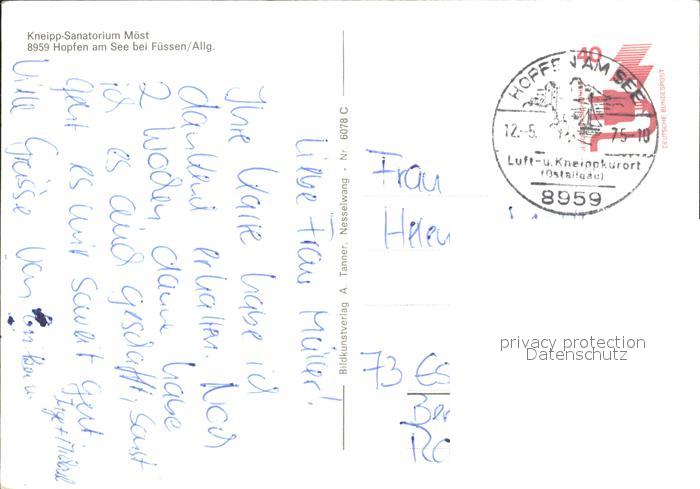 Kneipp-Sanatorium Möst
8959 Hopfen am See bei Füssen/Allg.
Liebe Frau Müller!
Ihre Karte habe ich
dankend erhalten. Noch
2 Wochen dann habe
ich es auch geschafft, sonst
geht es mir soweit gut
Viele Grüsse von
Bildkunstverlag A. Tanner, Nesselwang - Nr. 6078 C
Frau
Helen
73 Es
Ber
40
DEUTSCHE BUNDESPOST
HOPFEN AM SEE
12.-5. 75-10
Luft-u. Kneippkurort
(Ostallgäu)
8959
privacy protection
Datenschutz